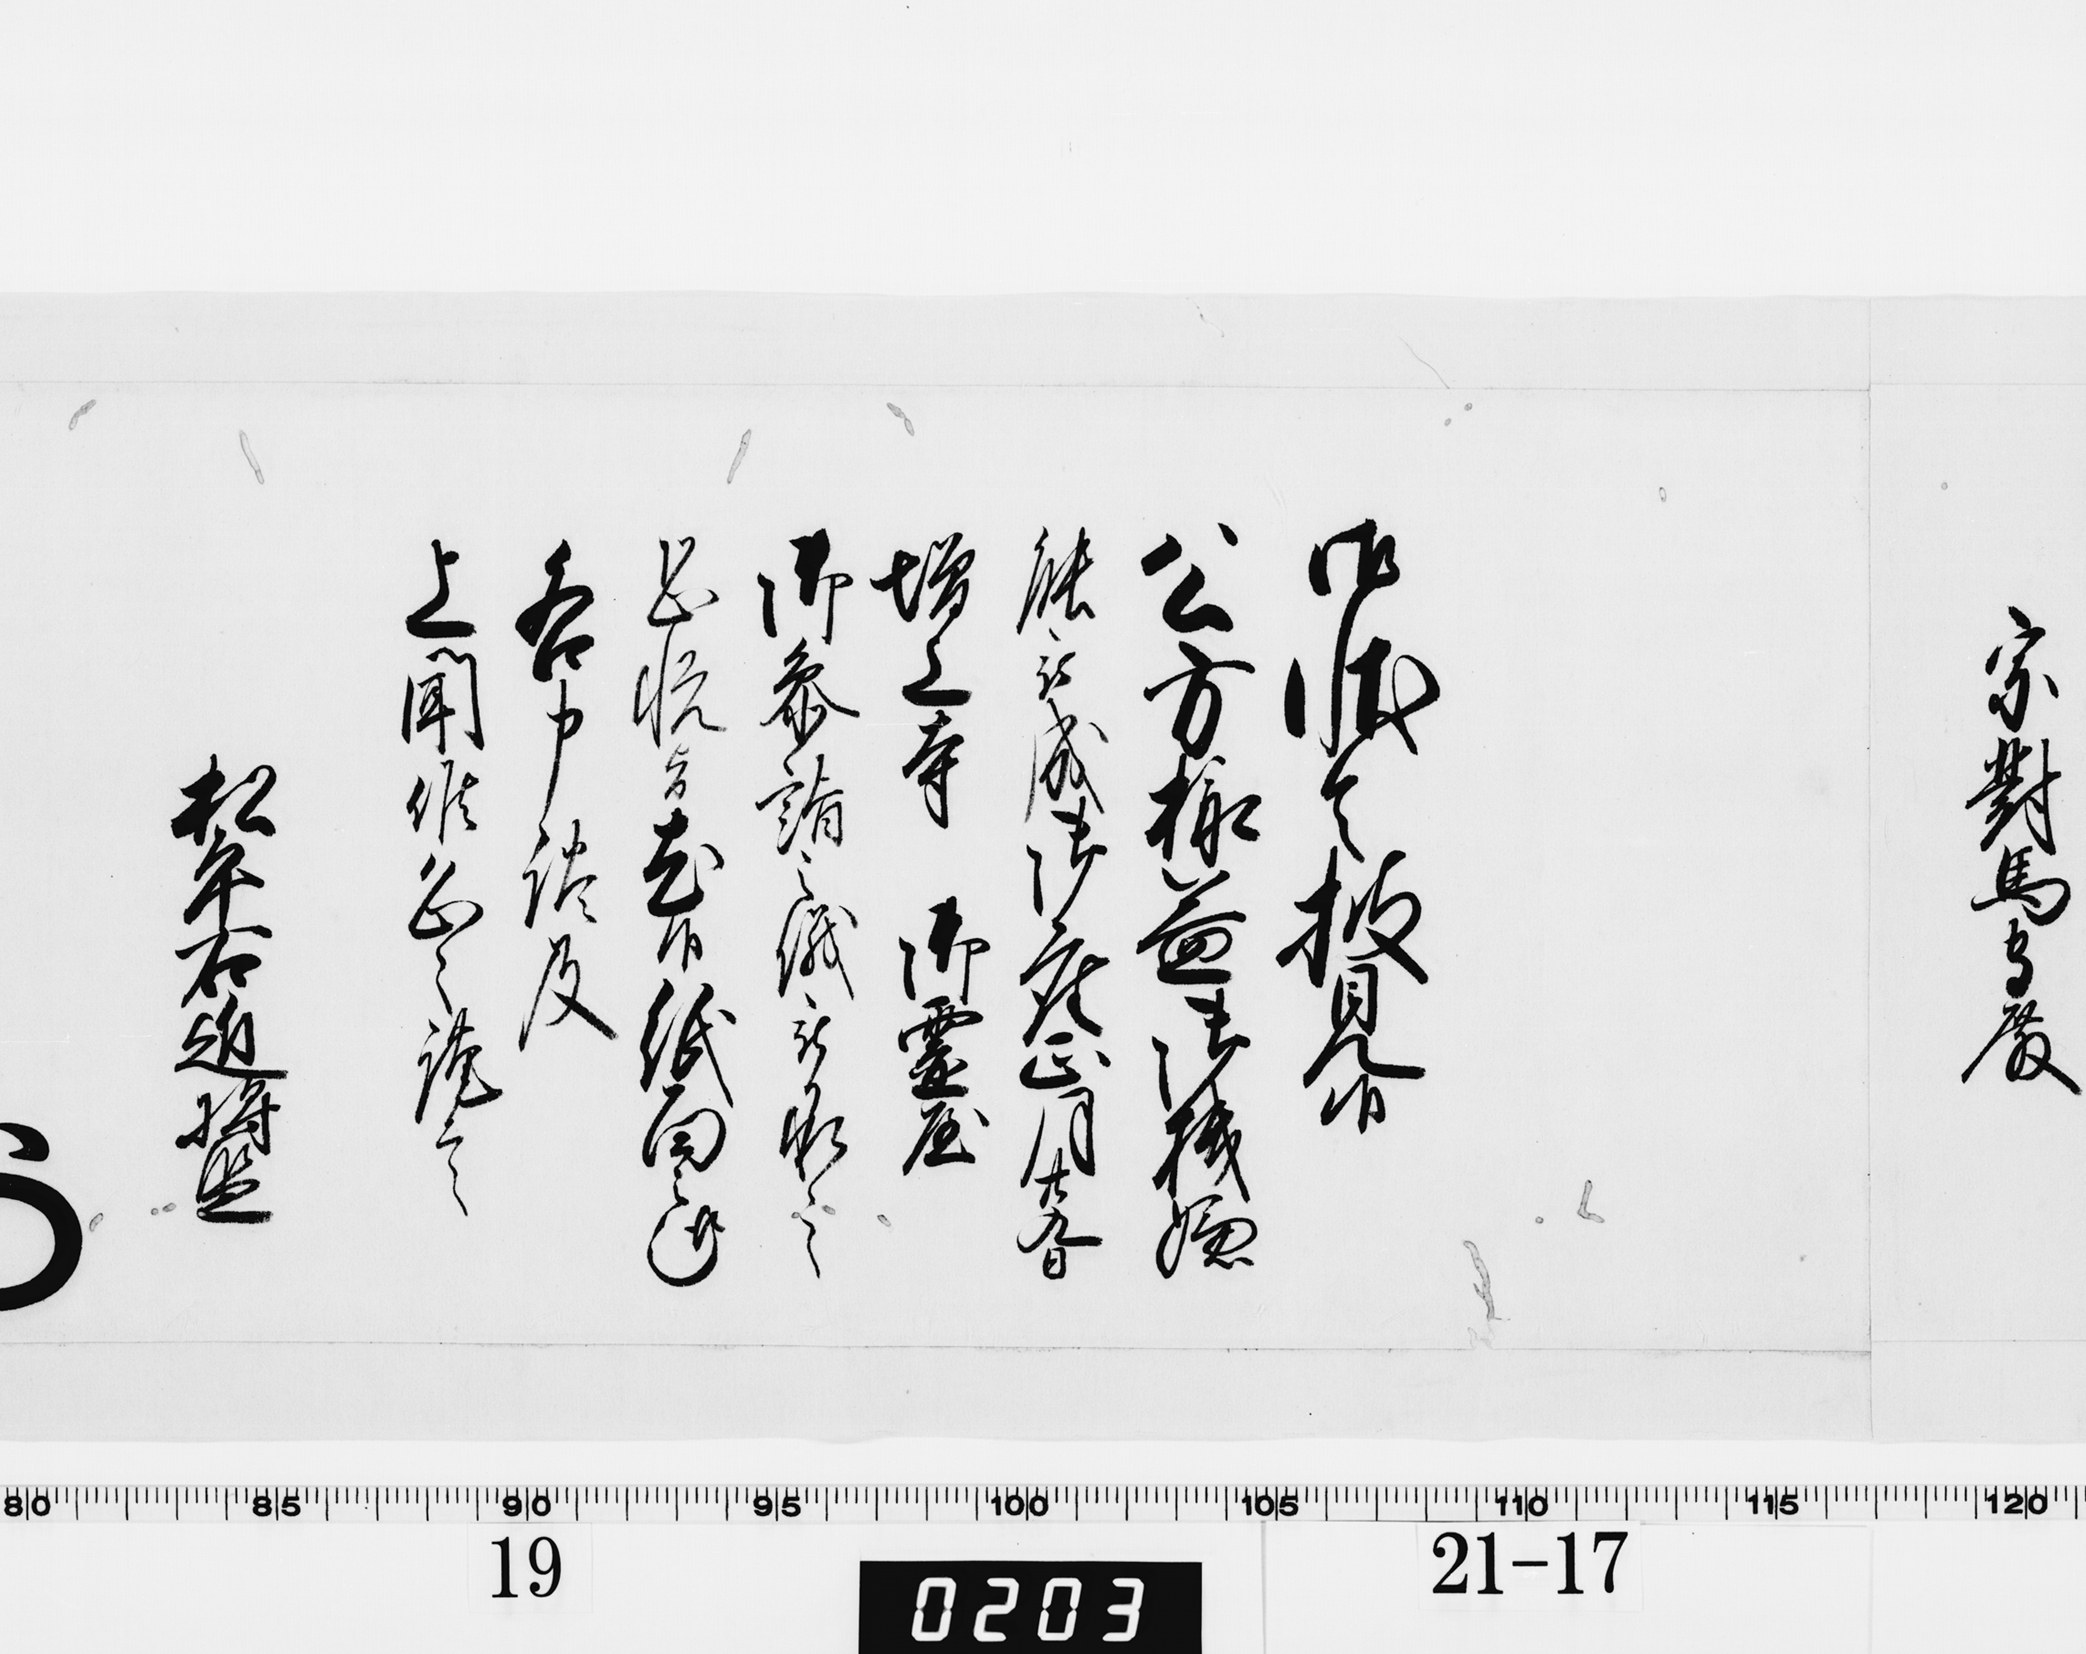 宗對馬守殿
御状令披見候
公方様益御機嫌
能被成御座正月廿九日
増上寺 御霊屋
御参詣之儀被承之
恐悦旨尤候紙面之趣
各申談及
上聞候恐々謹言
松平右近将監
80 85 90 95 100 105 110 115 120
19
0203
21-17